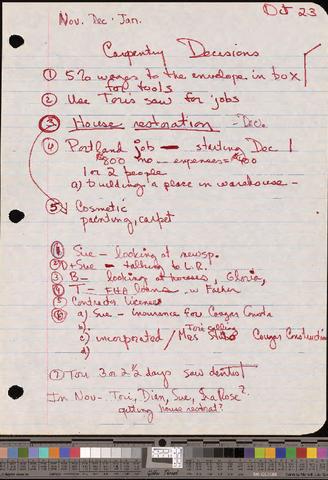 Oct 23
Nov. Dec. Jan.
Carpentry Decisions
① 5% wages to the envelope in box
for tools
② Use Tori's saw for jobs
③ House restoration - Dec.
④ Portland job — starting Dec 1
$800 mo — expenses = $400
1 or 2 people
a) building a place in warehouse -
⑤ Cosmetic
painting, carpet
① Sue - looking at newsp.
② D + Sue - talking to L.R.
③ B - looking at houses, Gloria,
④ T - FHA loans - w Father
⑤ Contractor License
⑥ a) Sue - insurance for Cougar Const
b)
c) incorporated / Mrs
Tori calling
Cougar Construction
d)
⑦ Tori 3 or 2 1/2 days saw dentist
In Nov - Tori, Dian, Sue, LaRose?
getting house restorat?